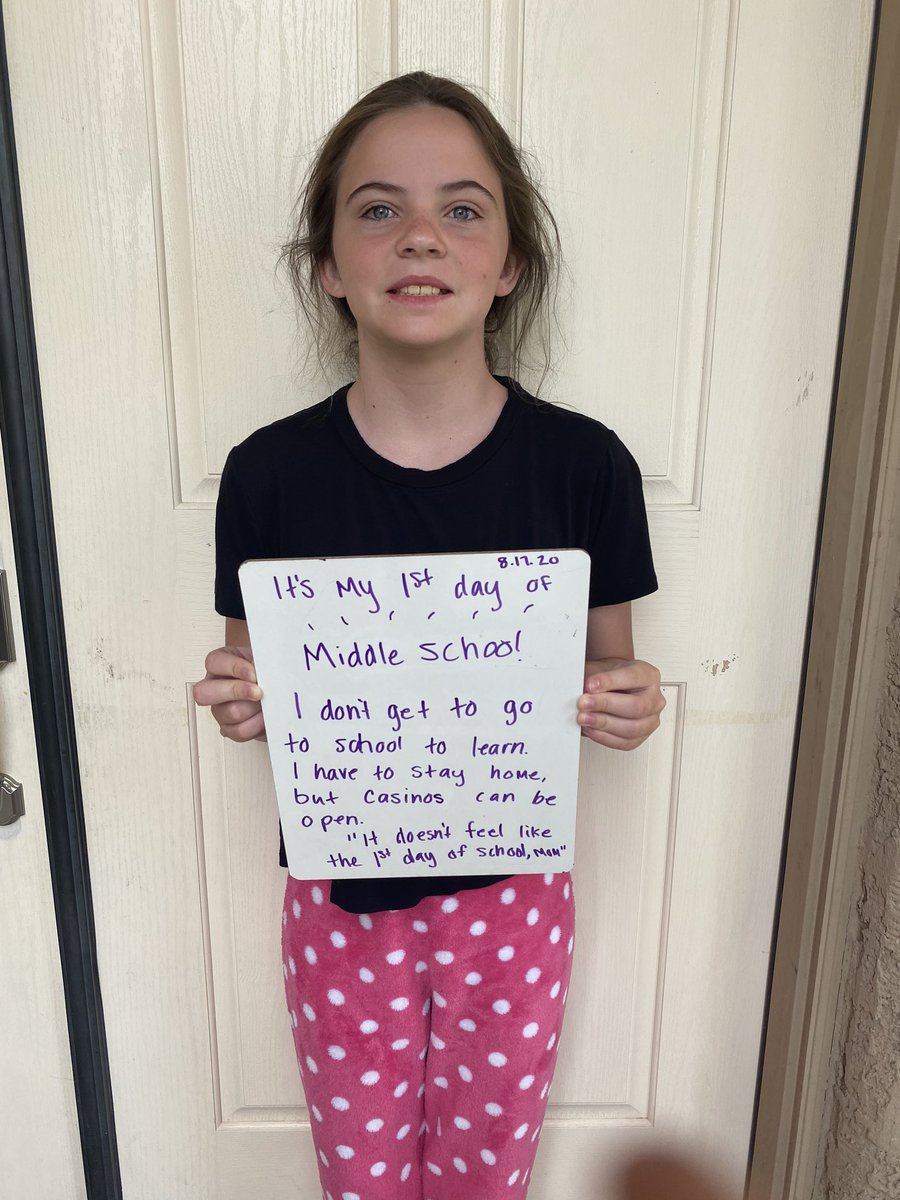 8.17.20
It's My 1st day of
Middle School
I don't get to go
to school to learn.
I have to stay home,
but Casinos can be
open.
"It doesn't feel like
the 1st day of school, Mom"